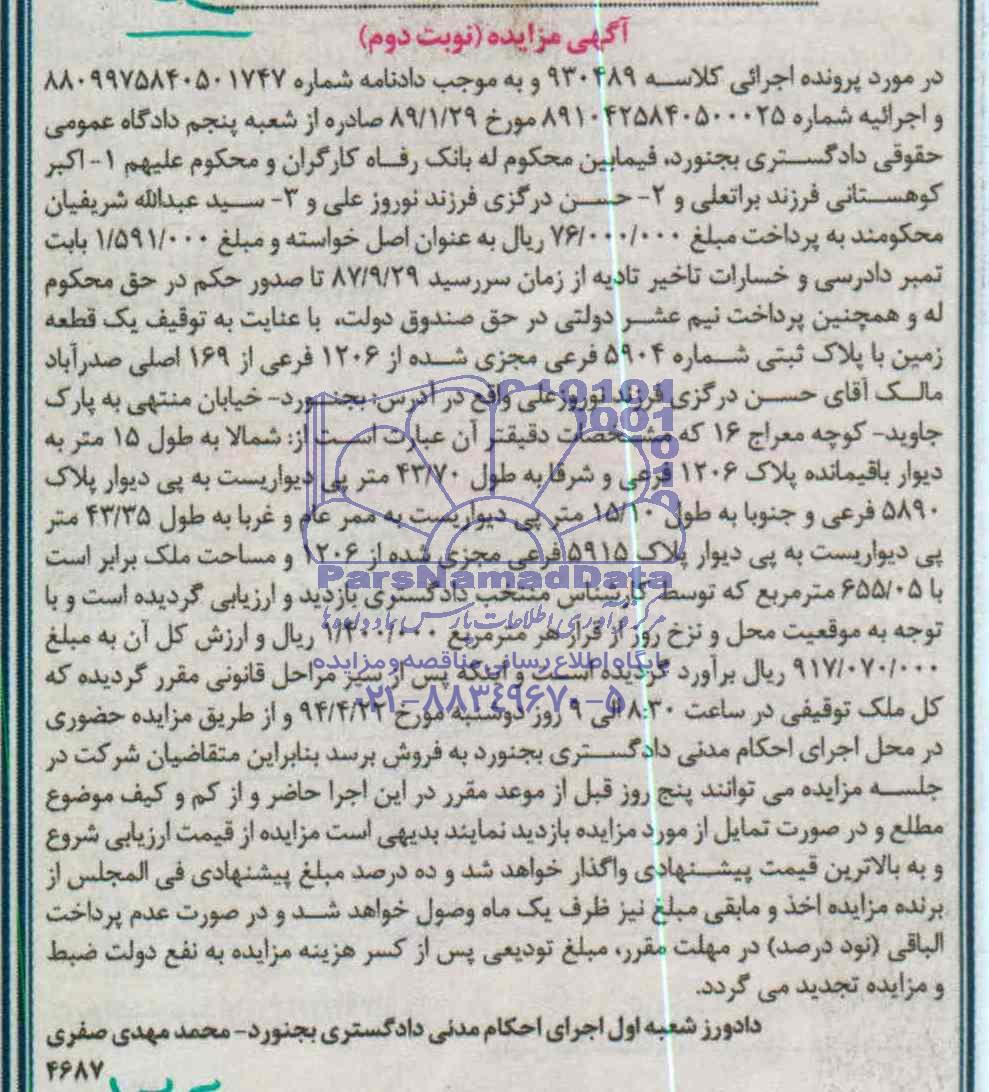 آگهی مزایده (نوبت دوم)
در مورد پرونده اجرائی کلاسه ۹۳۰۴۸۹ و به موجب دادنامه شماره ۸۸۰۹۹۷۵۸۴۰۵۰۱۷۴۷
و اجرائیه شماره ۸۹۱۰۴۲۵۸۴۰۵۰۰۰۲۵ مورخ ۸۹/۱/۲۹ صادره از شعبه پنجم دادگاه عمومی
حقوقی دادگستری بجنورد، فیمابین محکوم له بانک رفاه کارگران و محکوم علیهم ۱- اکبر
کوهستانی فرزند براتعلی و ۲- حسن درگزی فرزند نوروز علی و ۳- سید عبدالله شریفیان
محکومند به پرداخت مبلغ ۷۶/۰۰۰/۰۰۰ ریال به عنوان اصل خواسته و مبلغ ۱/۵۹۱/۰۰۰ بابت
تمبر دادرسی و خسارات تاخیر تادیه از زمان سررسید ۸۷/۹/۲۹ تا صدور حکم در حق محکوم
له و همچنین پرداخت نیم عشر دولتی در حق صندوق دولت، با عنایت به توقیف یک قطعه
زمین با پلاک ثبتی شماره ۵۹۰۴ فرعی مجزی شده از ۱۲۰۶ فرعی از ۱۶۹ اصلی صدرآباد
مالک آقای حسن درگزی فرزند نوروزعلی واقع در آدرس: بجنورد- خیابان منتهی به پارک
جاوید- کوچه معراج ۱۶ که مشخصات دقیقتر آن عبارت است از: شمالا به طول ۱۵ متر به
دیوار باقیمانده پلاک ۱۲۰۶ فرعی و شرقا به طول ۴۳/۷۰ متر پی دیواریست به پی دیوار پلاک
۵۸۹۰ فرعی و جنوبا به طول ۱۵/۱۰ متر پی دیواریست به ممر عام و غربا به طول ۴۳/۳۵ متر
پی دیواریست به پی دیوار پلاک ۵۹۱۵ فرعی مجزی شده از ۱۲۰۶ و مساحت ملک برابر است
با ۶۵۵/۰۵ مترمربع که توسط کارشناس منتخب دادگستری بازدید و ارزیابی گردیده است و با
توجه به موقعیت محل و نرخ روز از قرار هر مترمربع ۱/۴۰۰/۰۰۰ ریال و ارزش کل آن به مبلغ
۹۱۷/۰۷۰/۰۰۰ ریال برآورد گردیده است و اینکه پس از سیر مراحل قانونی مقرر گردیده که
کل ملک توقیفی در ساعت ۸:۳۰ الی ۹ روز دوشنبه مورخ ۹۴/۴/۲۲ و از طریق مزایده حضوری
در محل اجرای احکام مدنی دادگستری بجنورد به فروش برسد بنابراین متقاضیان شرکت در
جلسه مزایده می توانند پنج روز قبل از موعد مقرر در این اجرا حاضر و از کم و کیف موضوع
مطلع و در صورت تمایل از مورد مزایده بازدید نمایند بدیهی است مزایده از قیمت ارزیابی شروع
و به بالاترین قیمت پیشنهادی واگذار خواهد شد و ده درصد مبلغ پیشنهادی فی المجلس از
برنده مزایده اخذ و مابقی مبلغ نیز ظرف یک ماه وصول خواهد شد و در صورت عدم پرداخت
الباقی (نود درصد) در مهلت مقرر، مبلغ تودیعی پس از کسر هزینه مزایده به نفع دولت ضبط
و مزایده تجدید می گردد.
دادورز شعبه اول اجرای احکام مدنی دادگستری بجنورد- محمد مهدی صفری
۴۶۸۷
ParsNamadData
مرکز فرآوری اطلاعات پارس نماد داده ها
پایگاه اطلاع رسانی مناقصه و مزایده
۰۲۱-۸۸۳۴۹۶۷۰-۵